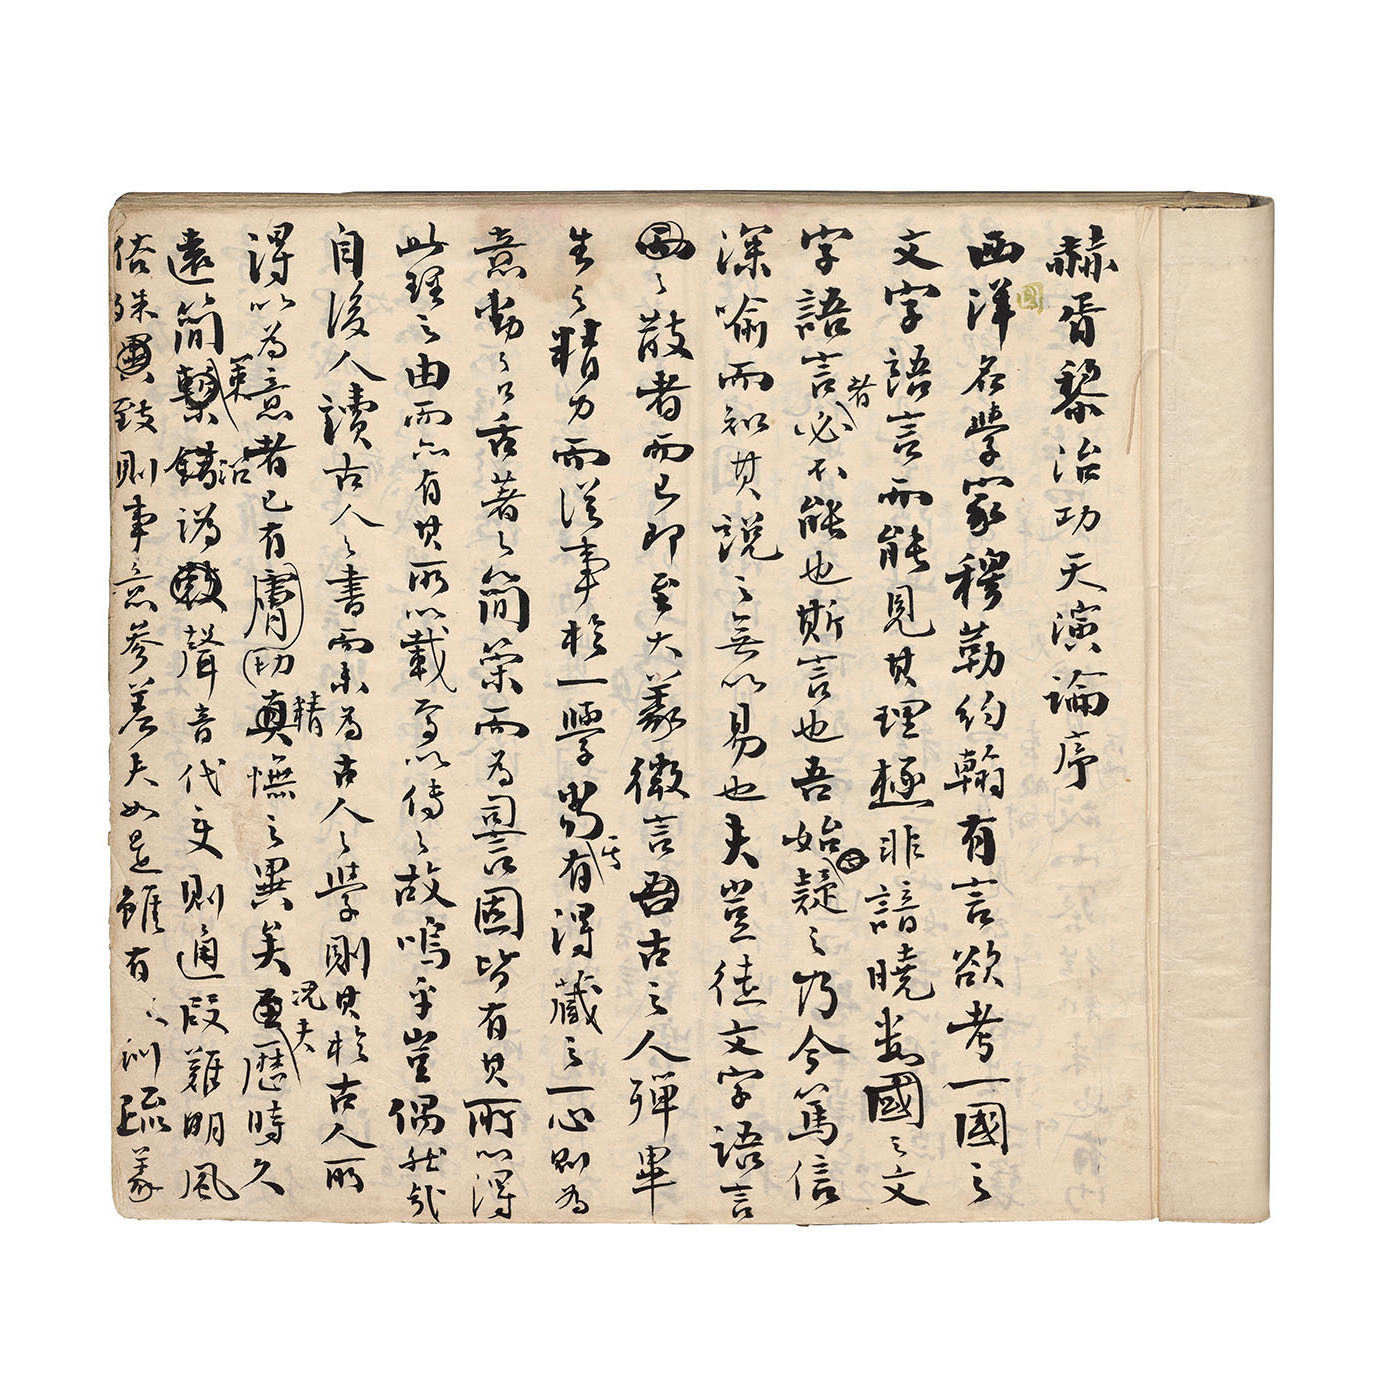 赫胥黎治功天演論序
西洋名學家穆勒約翰有言欲考一國之
文字語言而能見其理極非諳曉數國之文
字語言者必不能也斯言也吾始疑之乃今篤信
深喻而知其說之無以易也夫豈徒文字語言
之散者而已即至大義微言古之人殫畢
生之精力而從事於一學當其有得藏之一心則為
意動之口舌著之簡策而為詞言固皆有其所以得
此理之由而亦有其所以載焉以傳之故嗚乎豈偶然哉
自後人讀古人之書而未為古人之學則其於古人所
得以為意者已有膚切精憮之異矣況夫歷時久
遠簡策錯沿訛聲音代變則通叚難明風
俗殊致則事意參差夫如是雖有之訓疏義